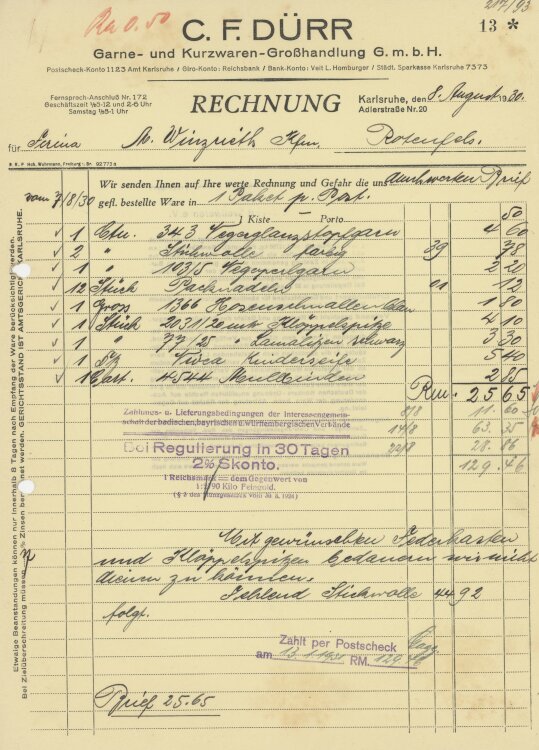 Ra 0.50
217/93
C. F. DÜRR
13 *
Garne- und Kurzwaren-Großhandlung G. m. b. H.
Postscheck-Konto 1123 Amt Karlsruhe / Giro-Konto: Reichsbank / Bank-Konto: Veit L. Homburger / Städt. Sparkasse Karlsruhe 7373
Fernsprech-Anschluß Nr. 172
Geschäftszeit ½8-12 und 2-6 Uhr
Samstag ½8-1 Uhr
RECHNUNG
Karlsruhe, den 8. August 1930.
Adlerstraße Nr. 20
für Firma M. Winzrieth Kfm. Rotenfels.
vom 7/8/30
Wir senden Ihnen auf Ihre werte Rechnung und Gefahr die uns durch werten Brief
gefl. bestellte Ware in 1 Paket p. Post.
1 Kiste — Porto 50
1 343 4 60
2 " Stickwolle farbig 89 78
1 " 103/5 Vegoperlgarn 2 20
12 Stück Packnadeln 01 12
1 Gross 1366 Hosenschnallen 1 80
1 Stück 2031/20 mtr Klöppelspitze 4 10
1 " 77/25 " schwarz 3 30
1 Kinderseife 5 40
1 Cart. 4544 Mullbinden 2 85
Rm. 25 65
Zahlungs- u. Lieferungsbedingungen der Interessengemein-
schaft der badischen, bayrischen u. württembergischen Verbände
8/8 11.60
14/8 63.35
Bei Regulierung in 30 Tagen
22/8 28.86
2% Skonto.
129.46
1 Reichsmark = dem Gegenwert von
1/2790 Kilo Feingold.
(§ 2 des Münzgesetzes vom 30. 8. 1924)
Mit gewünschten Federkasten
und Klöppelspitzen bedauern wir nicht
dienen zu können.
Fehlend Stickwolle 4492
folgt.
Zahlt per Postscheck
am 13.1.1931 RM. 129.46
Brief 25.65
Etwaige Beanstandungen können nur innerhalb 8 Tagen nach Empfang der Ware berücksichtigt werden.
Bei Zielüberschreitung müssen % Zinsen berechnet werden. GERICHTSSTAND IST AMTSGERICHT KARLSRUHE.